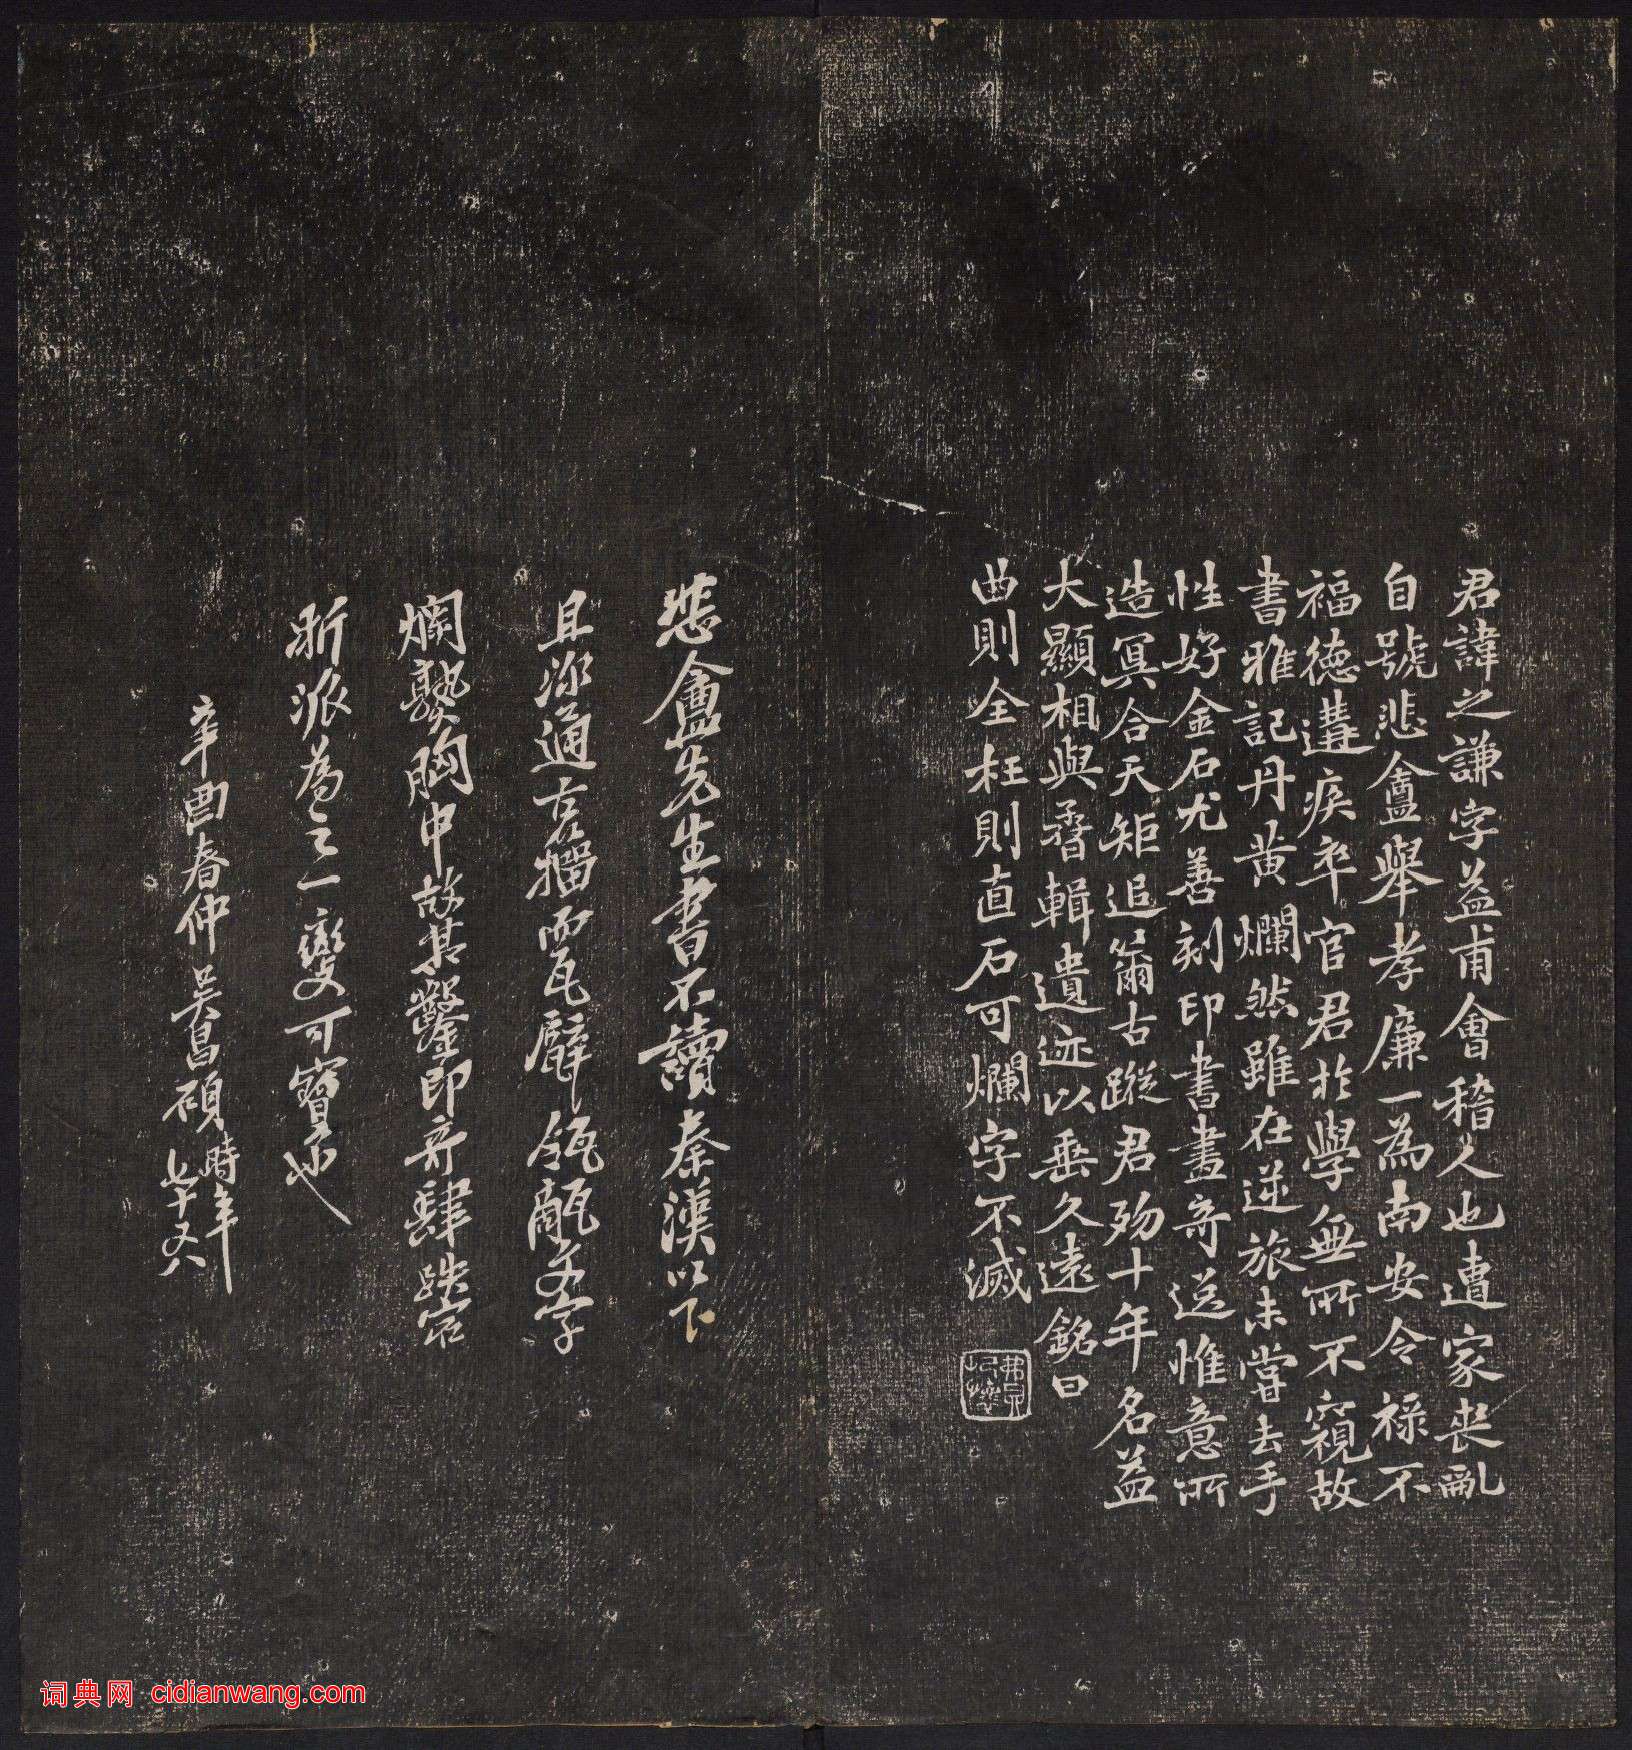 君諱之謙字益甫會稽人也遭家喪亂
自號悲盦舉孝廉一為南安令祿不
福德遘疾卒官君於學無所不窺故
書雅記丹黃爛然雖在逆旅未嘗去手
性好金石尤善刻印書畫奇逸惟意所
造冥合天矩追籀古蹤君歿十年名益
大顯相與聱輯遺迹以垂久遠銘曰
曲則全枉則直石可爛字不滅
悲盦先生書不讀秦漢以下
且深通古籀而瓦甓瓴甋文字
爛熟胸中故其鑿印奇肆跌宕
浙派為之一變可寶也
辛酉春仲吳昌碩
時年
七十又八
词典网 cidianwang.com